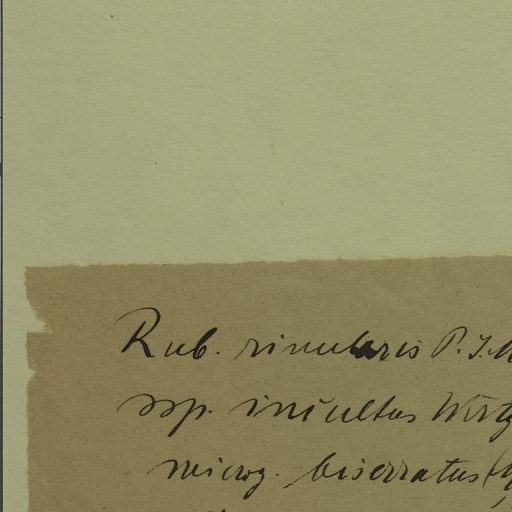 Rub. rivularis P. J. M
ssp. incultus Wirtg
microg. biserratus (